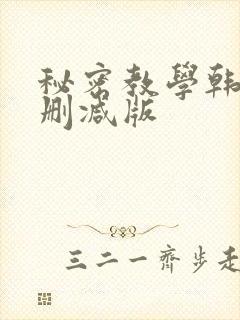 秘密教學韩
删减版
三二一齊步走